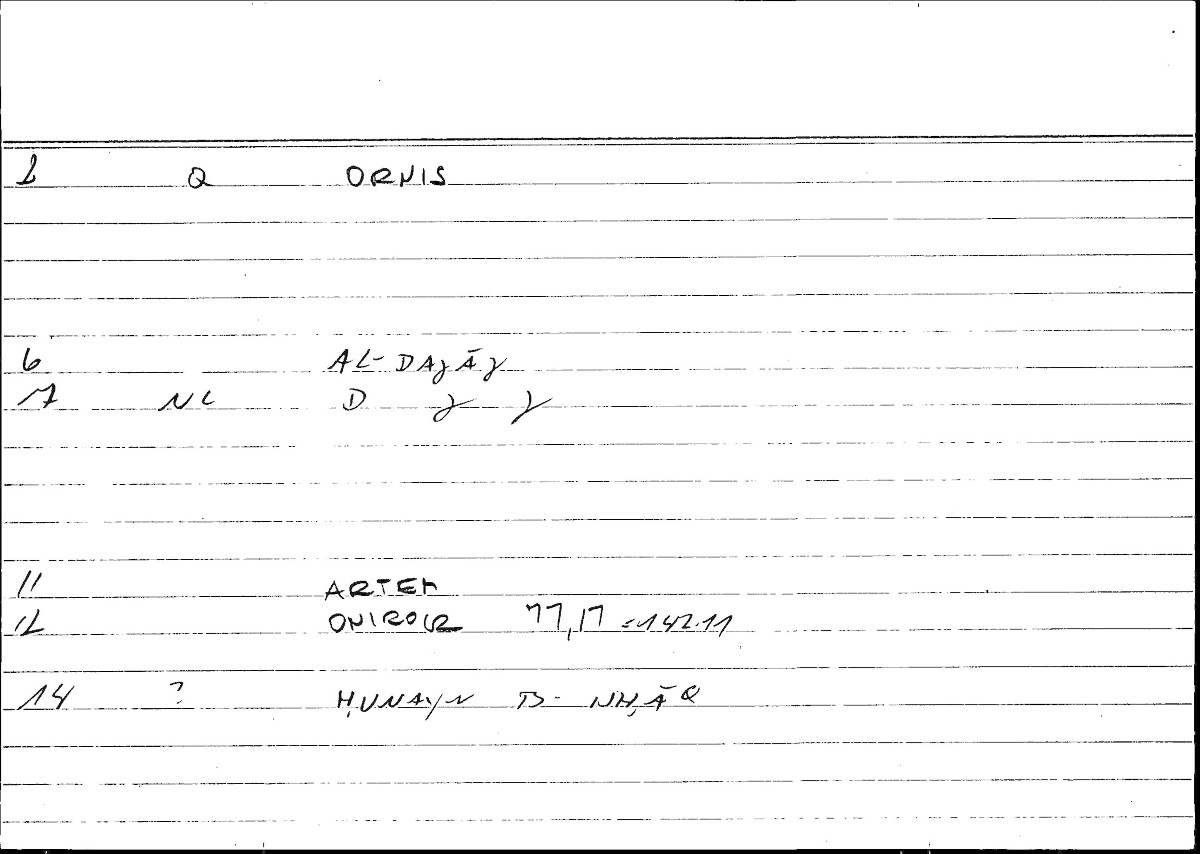 1 Q ORNIS
6 AL-DAǧĀǧ
7 NC D ǧ ǧ
11 ARTEM
12 ONIROCR 77,17 = 142.11
14 ? ḤUNAYN B- NḤĀQ